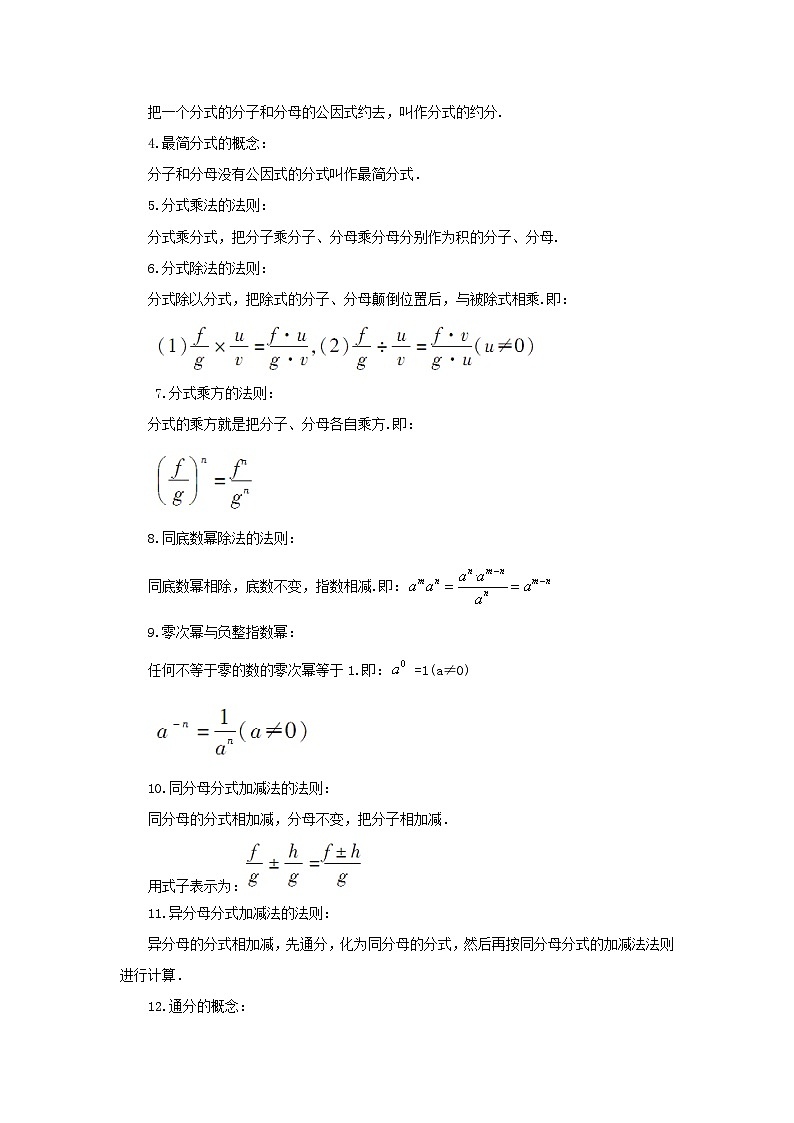 把一个分式的分子和分母的公因式约去，叫作分式的约分.
4.最简分式的概念：
分子和分母没有公因式的分式叫作最简分式.
5.分式乘法的法则：
分式乘分式，把分子乘分子、分母乘分母分别作为积的分子、分母.
6.分式除法的法则：
分式除以分式，把除式的分子、分母颠倒位置后，与被除式相乘.即：
(1) f/g × u/v = f·u/g·v ,(2) f/g ÷ u/v = f·v/g·u (u≠0)
7.分式乘方的法则：
分式的乘方就是把分子、分母各自乘方.即：
(f/g)^n = f^n/g^n
8.同底数幂除法的法则：
同底数幂相除，底数不变，指数相减.即：a^m a^n = a^n a^(m-n)/a^n = a^(m-n)
9.零次幂与负整指数幂：
任何不等于零的数的零次幂等于1.即：a^0 =1(a≠0)
a^(-n) = 1/a^n (a≠0)
10.同分母分式加减法的法则：
同分母的分式相加减，分母不变，把分子相加减.
用式子表示为：f/g ± h/g = f±h/g
11.异分母分式加减法的法则：
异分母的分式相加减，先通分，化为同分母的分式，然后再按同分母分式的加减法法则
进行计算.
12.通分的概念：